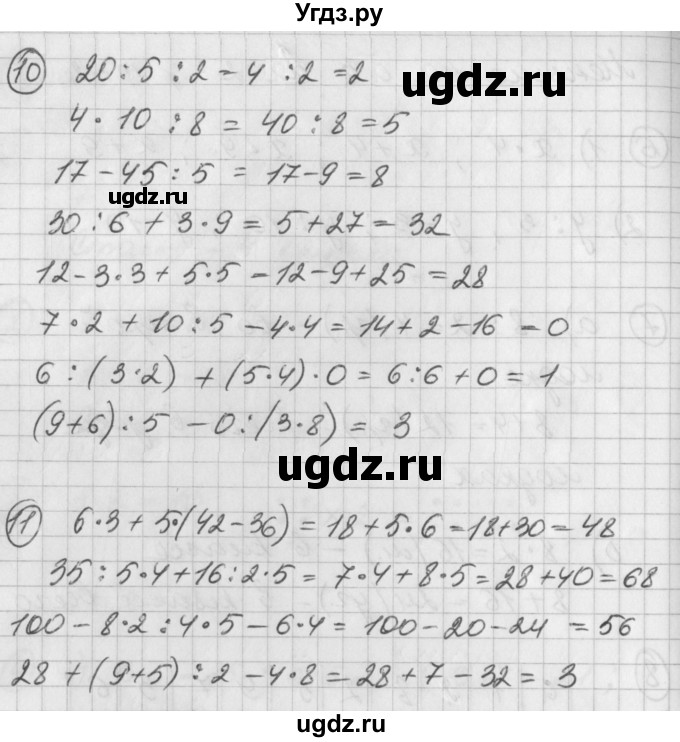 Угдз.ру
10 20:5:2-4:2=2
угдз.ru
4·10:8=40:8=5
17-45:5=17-9=8
угдз.ru
30:6+3·9=5+27=32
12-3·3+5·5-12-9+25=28
7·2+10:5-4·4=14+2-16-0
6:(3·2)+(5·4)·0=6:6+0=1
(9+6):5-0:(3·8)=3
ugdz.ru
11 6·3+5·(42-36)=18+5·6=18+30=48
35:5·4+16:2·5=7·4+8·5=28+40=68
100-8·2:4·5-6·4=100-20-24=56
28+(9+5):2-4·8=28+7-32=3
ugdz.ru